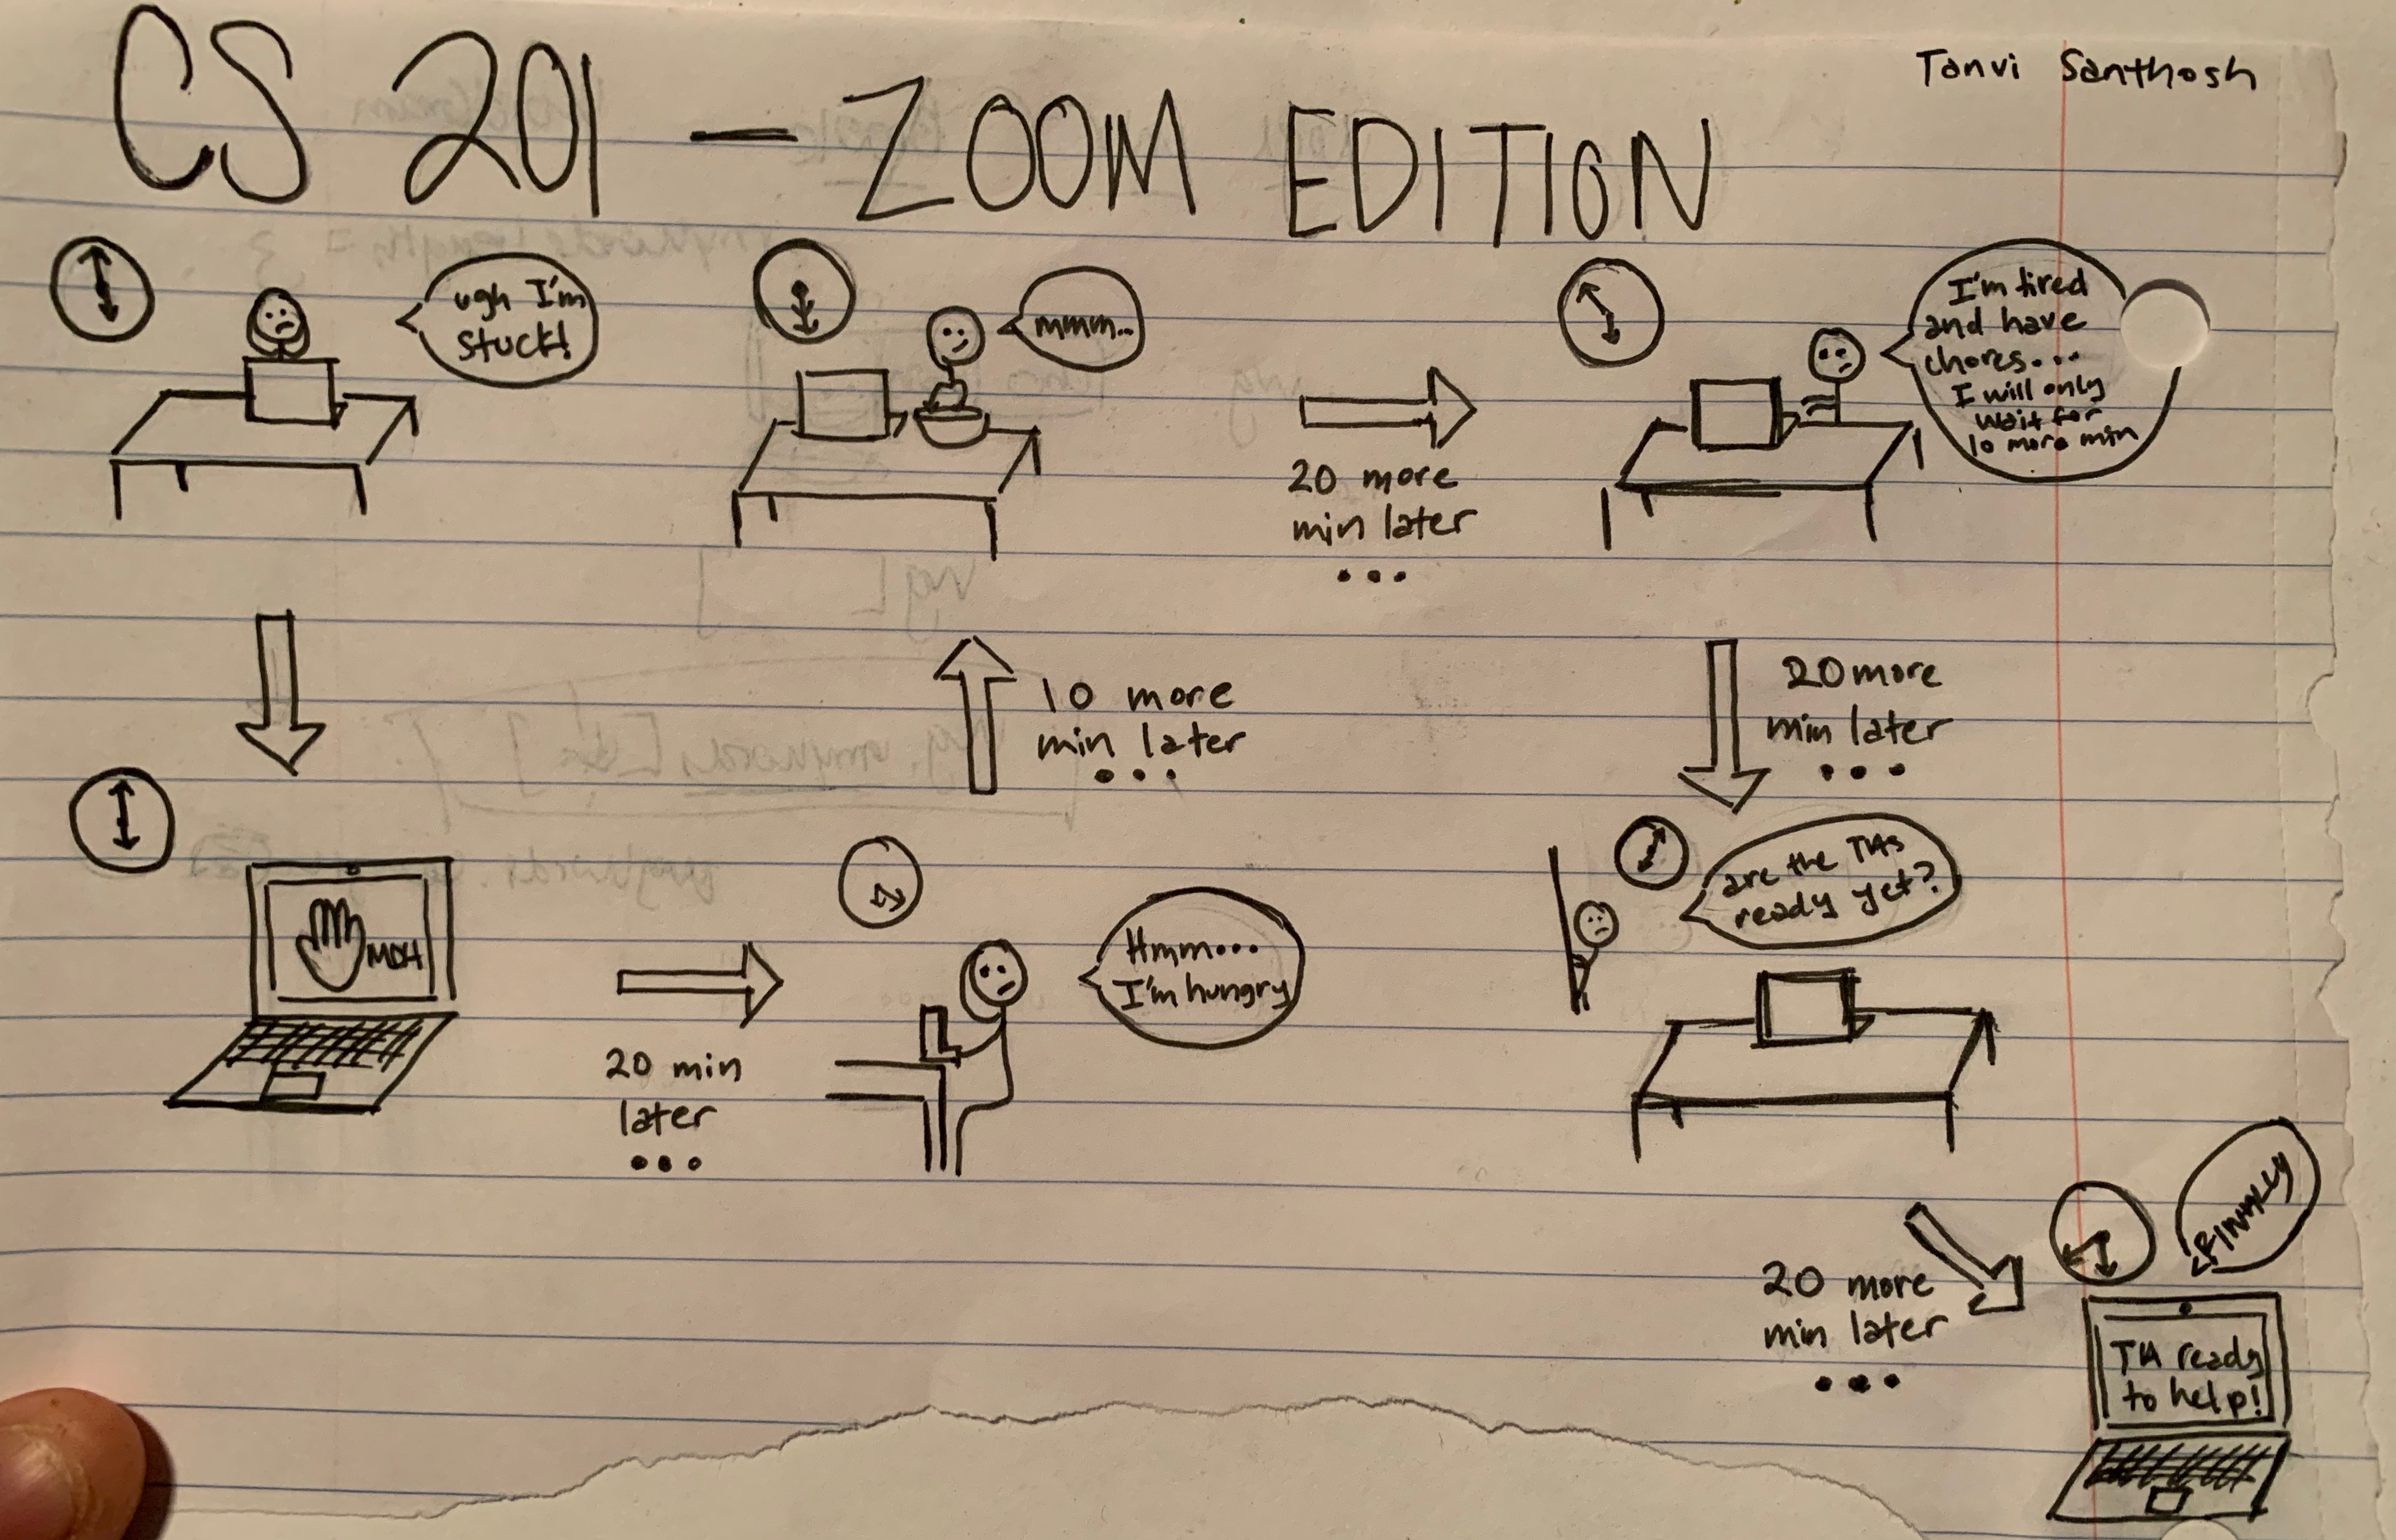 CS 201 — ZOOM EDITION
Tanvi Santhosh
ugh I'm
stuck!
MOH
20 min
later
•••
Hmm...
I'm hungry
10 more
min later
•••
mmm..
20 more
min later
•••
I'm tired
and have
chores...
I will only
wait for
10 more min
20 more
min later
•••
are the TAs
ready yet?
20 more
min later
•••
FINALLY
TA ready
to help!